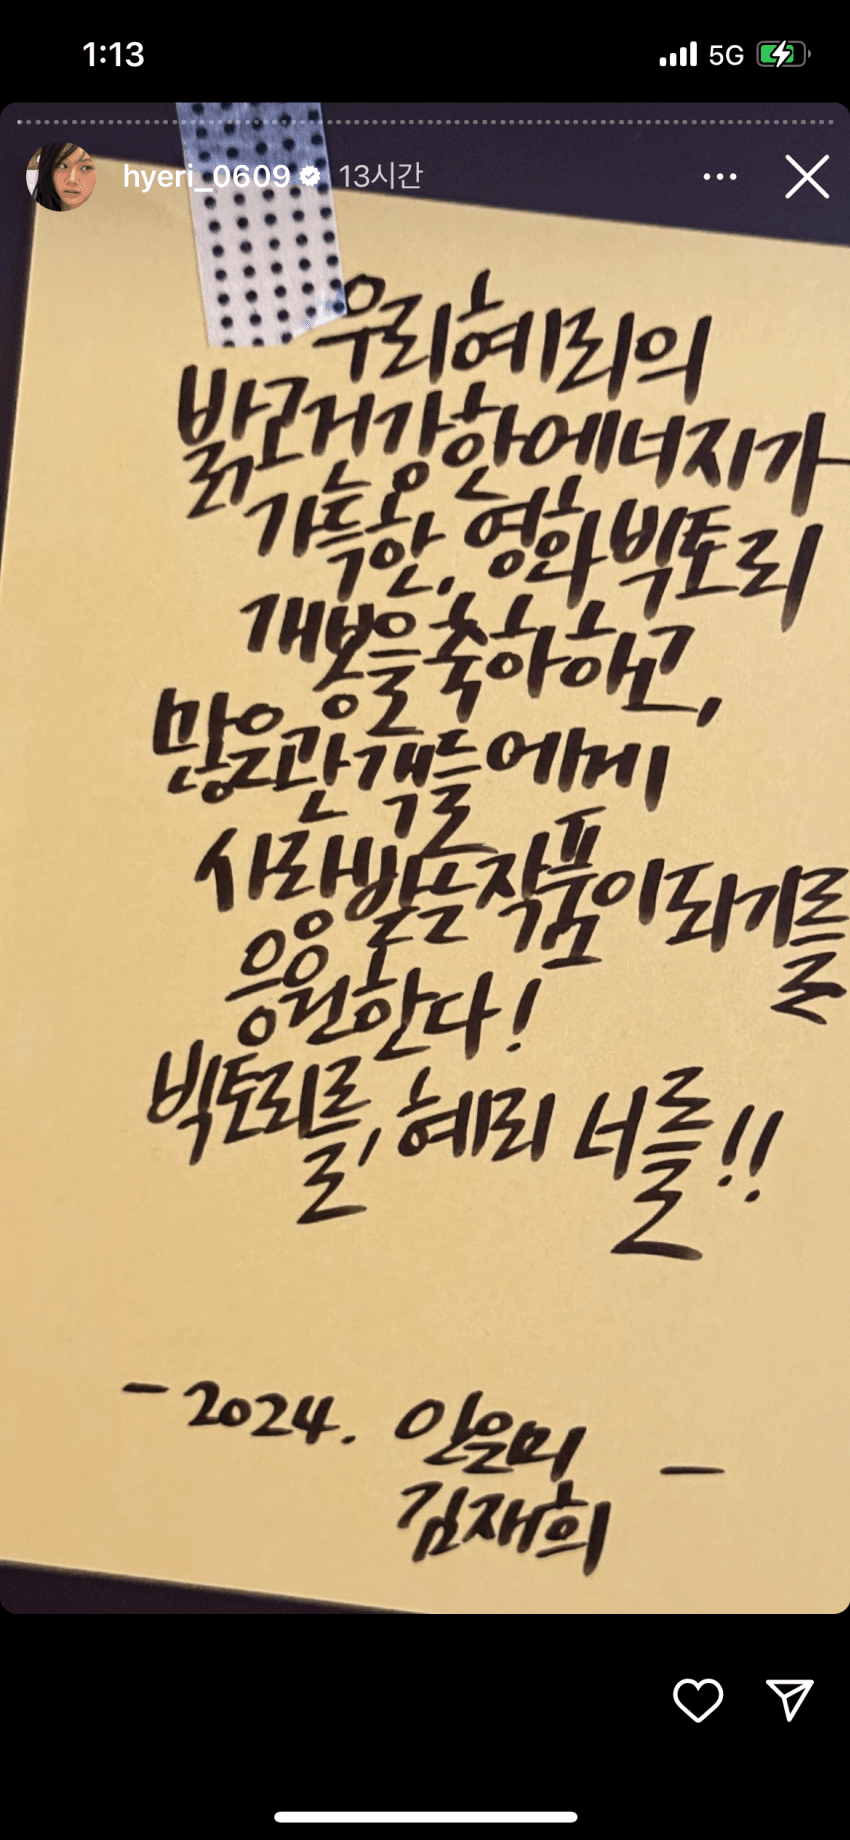 1:13
5G
hyeri_0609 13시간
우리혜리의
밝고건강한에너지가
가득한, 영화빅토리
개봉을축하하고,
많은관객들에게
사랑받는작품이되기를
응원한다!
빅토리를, 혜리 너를!!
-2024. 인은미
김재희 -